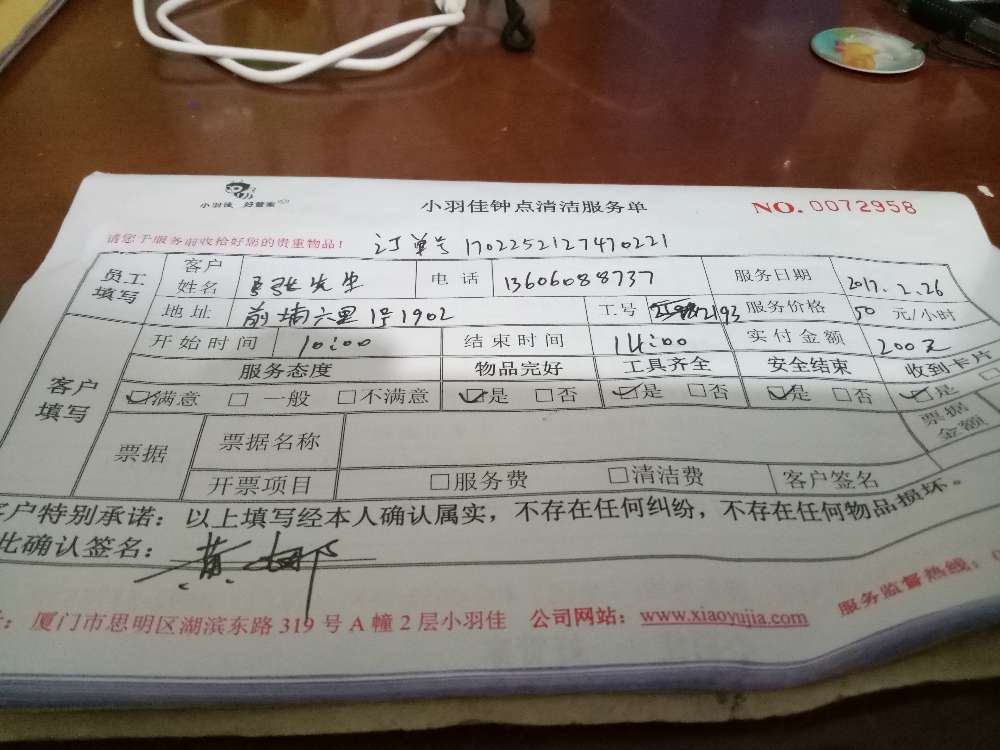 小羽佳 好管家
小羽佳钟点清洁服务单
NO. 0072958
请您于服务前收给好您的贵重物品!
订单号 170225212747022​1
员工填写 客户姓名 张先生 电话 13606088737 服务日期 2017.2.26
地址 前埔六里1号1902 工号 2193 服务价格 50 元/小时
客户填写 开始时间 10:00 结束时间 14:00 实付金额 200元
服务态度 物品完好 工具齐全 安全结束 收到卡片
☑满意 □一般 □不满意 ☑是 □否 ☑是 □否 ☑是 □否 ☑是 □
票据 票据名称 票据金额
开票项目 □服务费 □清洁费 客户签名
客户特别承诺：以上填写经本人确认属实，不存在任何纠纷，不存在任何物品损坏。
此确认签名：黄
厦门市思明区湖滨东路 319 号 A 幢 2 层小羽佳 公司网站：www.xiaoyujia.com 服务监督热线：